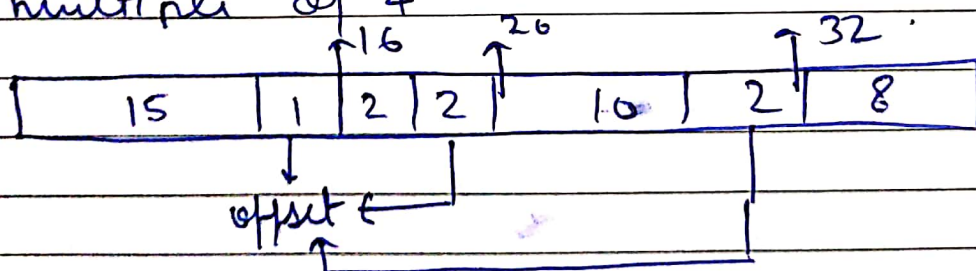 multiple of 4
16 20 32
15 1 2 2 10 2 8
offset